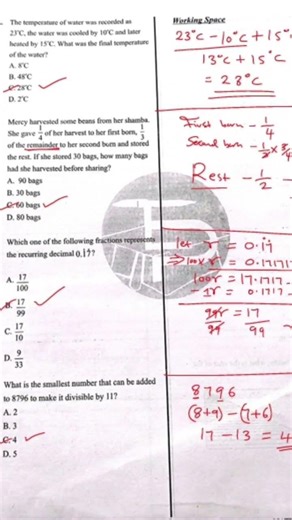 The temperature of water was recorded as
23°C, the water was cooled by 10°C and later
heated by 15°C. What was the final temperature
of the water?
A. 8°C
B. 48°C
C. 28°C
D. 2°C
Mercy harvested some beans from her shamba.
She gave 1/4 of her harvest to her first born, 1/3
of the remainder to her second born and stored
the rest. If she stored 30 bags, how many bags
had she harvested before sharing?
A. 90 bags
B. 30 bags
C. 60 bags
D. 80 bags
Which one of the following fractions represents
the recurring decimal
A. 17/100
B. 17/99
C. 17/10
D. 9/33
What is the smallest number that can be added
to 8796 to make it divisible by 11?
A. 2
B. 3
C. 4
D. 5
Working Space
23°C - 10°C + 15°
13°C + 15°C
= 28°C
First born - 1/4
Second born - 1/3 x 3/4
Rest - 1/2
let r = 0.17
⇒ 100 x r = 0.17171
100r = 17.1717
- 1r = 0.1717
99r/99 = 17/99
8796
(8+9) - (7+6)
17 - 13 = 4